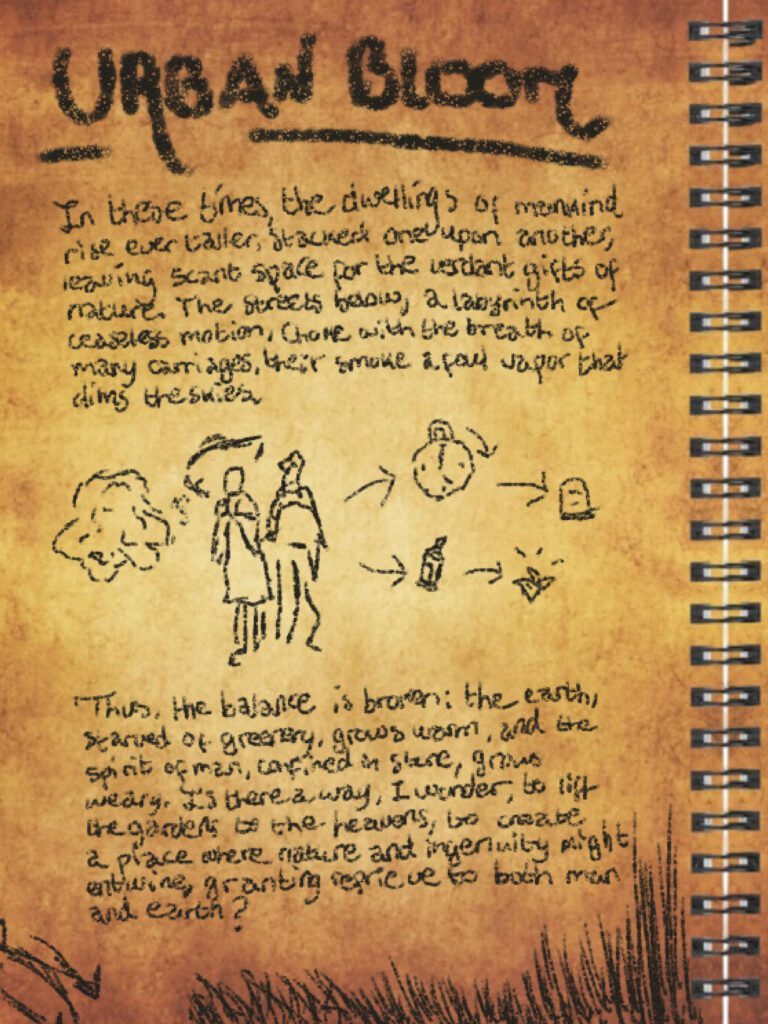 URBAN BLOOM
In these times, the dwellings of mankind
rise ever taller, stacked one upon another,
leaving scant space for the verdant gifts of
nature. The streets below, a labyrinth of
ceaseless motion, Choke with the breath of
many carriages, their smoke a foul vapor that
dims the skies.
Thus, the balance is broken: the earth,
starved of greenery, grows warm, and the
spirit of man, confined in stone, grows
weary. Is there a way, I wonder, to lift
the gardens to the heavens, to create
a place where nature and ingenuity might
entwine, granting reprieve to both man
and earth?